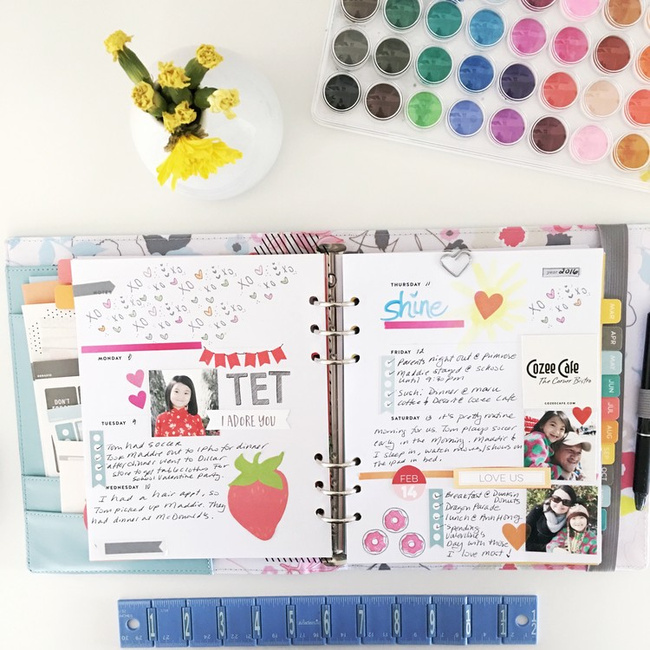 xo xo xo
MONDAY 8
TET
I ADORE YOU
TUESDAY 9
Tom had soccer
Tom Maddie out to Pho for dinner
after dinner went to Dollar
store to get tablecloths for
School Valentine party.
WEDNESDAY 10
I had a hair appt, so
Tom picked up Maddie. They
had dinner at McDonald's.
DON'T
THURSDAY 11
shine
year 2016
FRIDAY 12
Parents Night Out @ Primrose
Maddie stayed @ school
until 9:30pm
Sushi Dinner @ maru
coffee & Desert @ Cozee Cafe
COZEE CAFE
The Corner Bistro
COZEECAFE.COM
SATURDAY 13 it's pretty routine
morning for us. Tom plays soccer
early in the morning. Maddie &
I sleep in, watch movies/shows on
the ipad in bed.
FEB
14
LOVE US
Breakfast @ Dunkin
Donuts
Dragon Parade
lunch @ Ann Hong
Spending
Valentine's
Day with those
I love most
MAR
APR
MAY
JUN
JUL
AUG
SEP
1 2 3 4 5 6 7 8 9 10 11 12